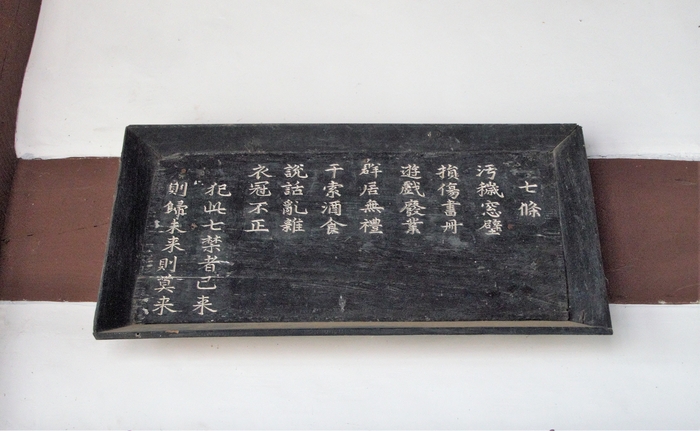 七條
汚穢窓壁
損傷書冊
遊戱廢業
群居無禮
干索酒食
說話亂雜
衣冠不正
犯此七禁者已来
則歸未来則莫来